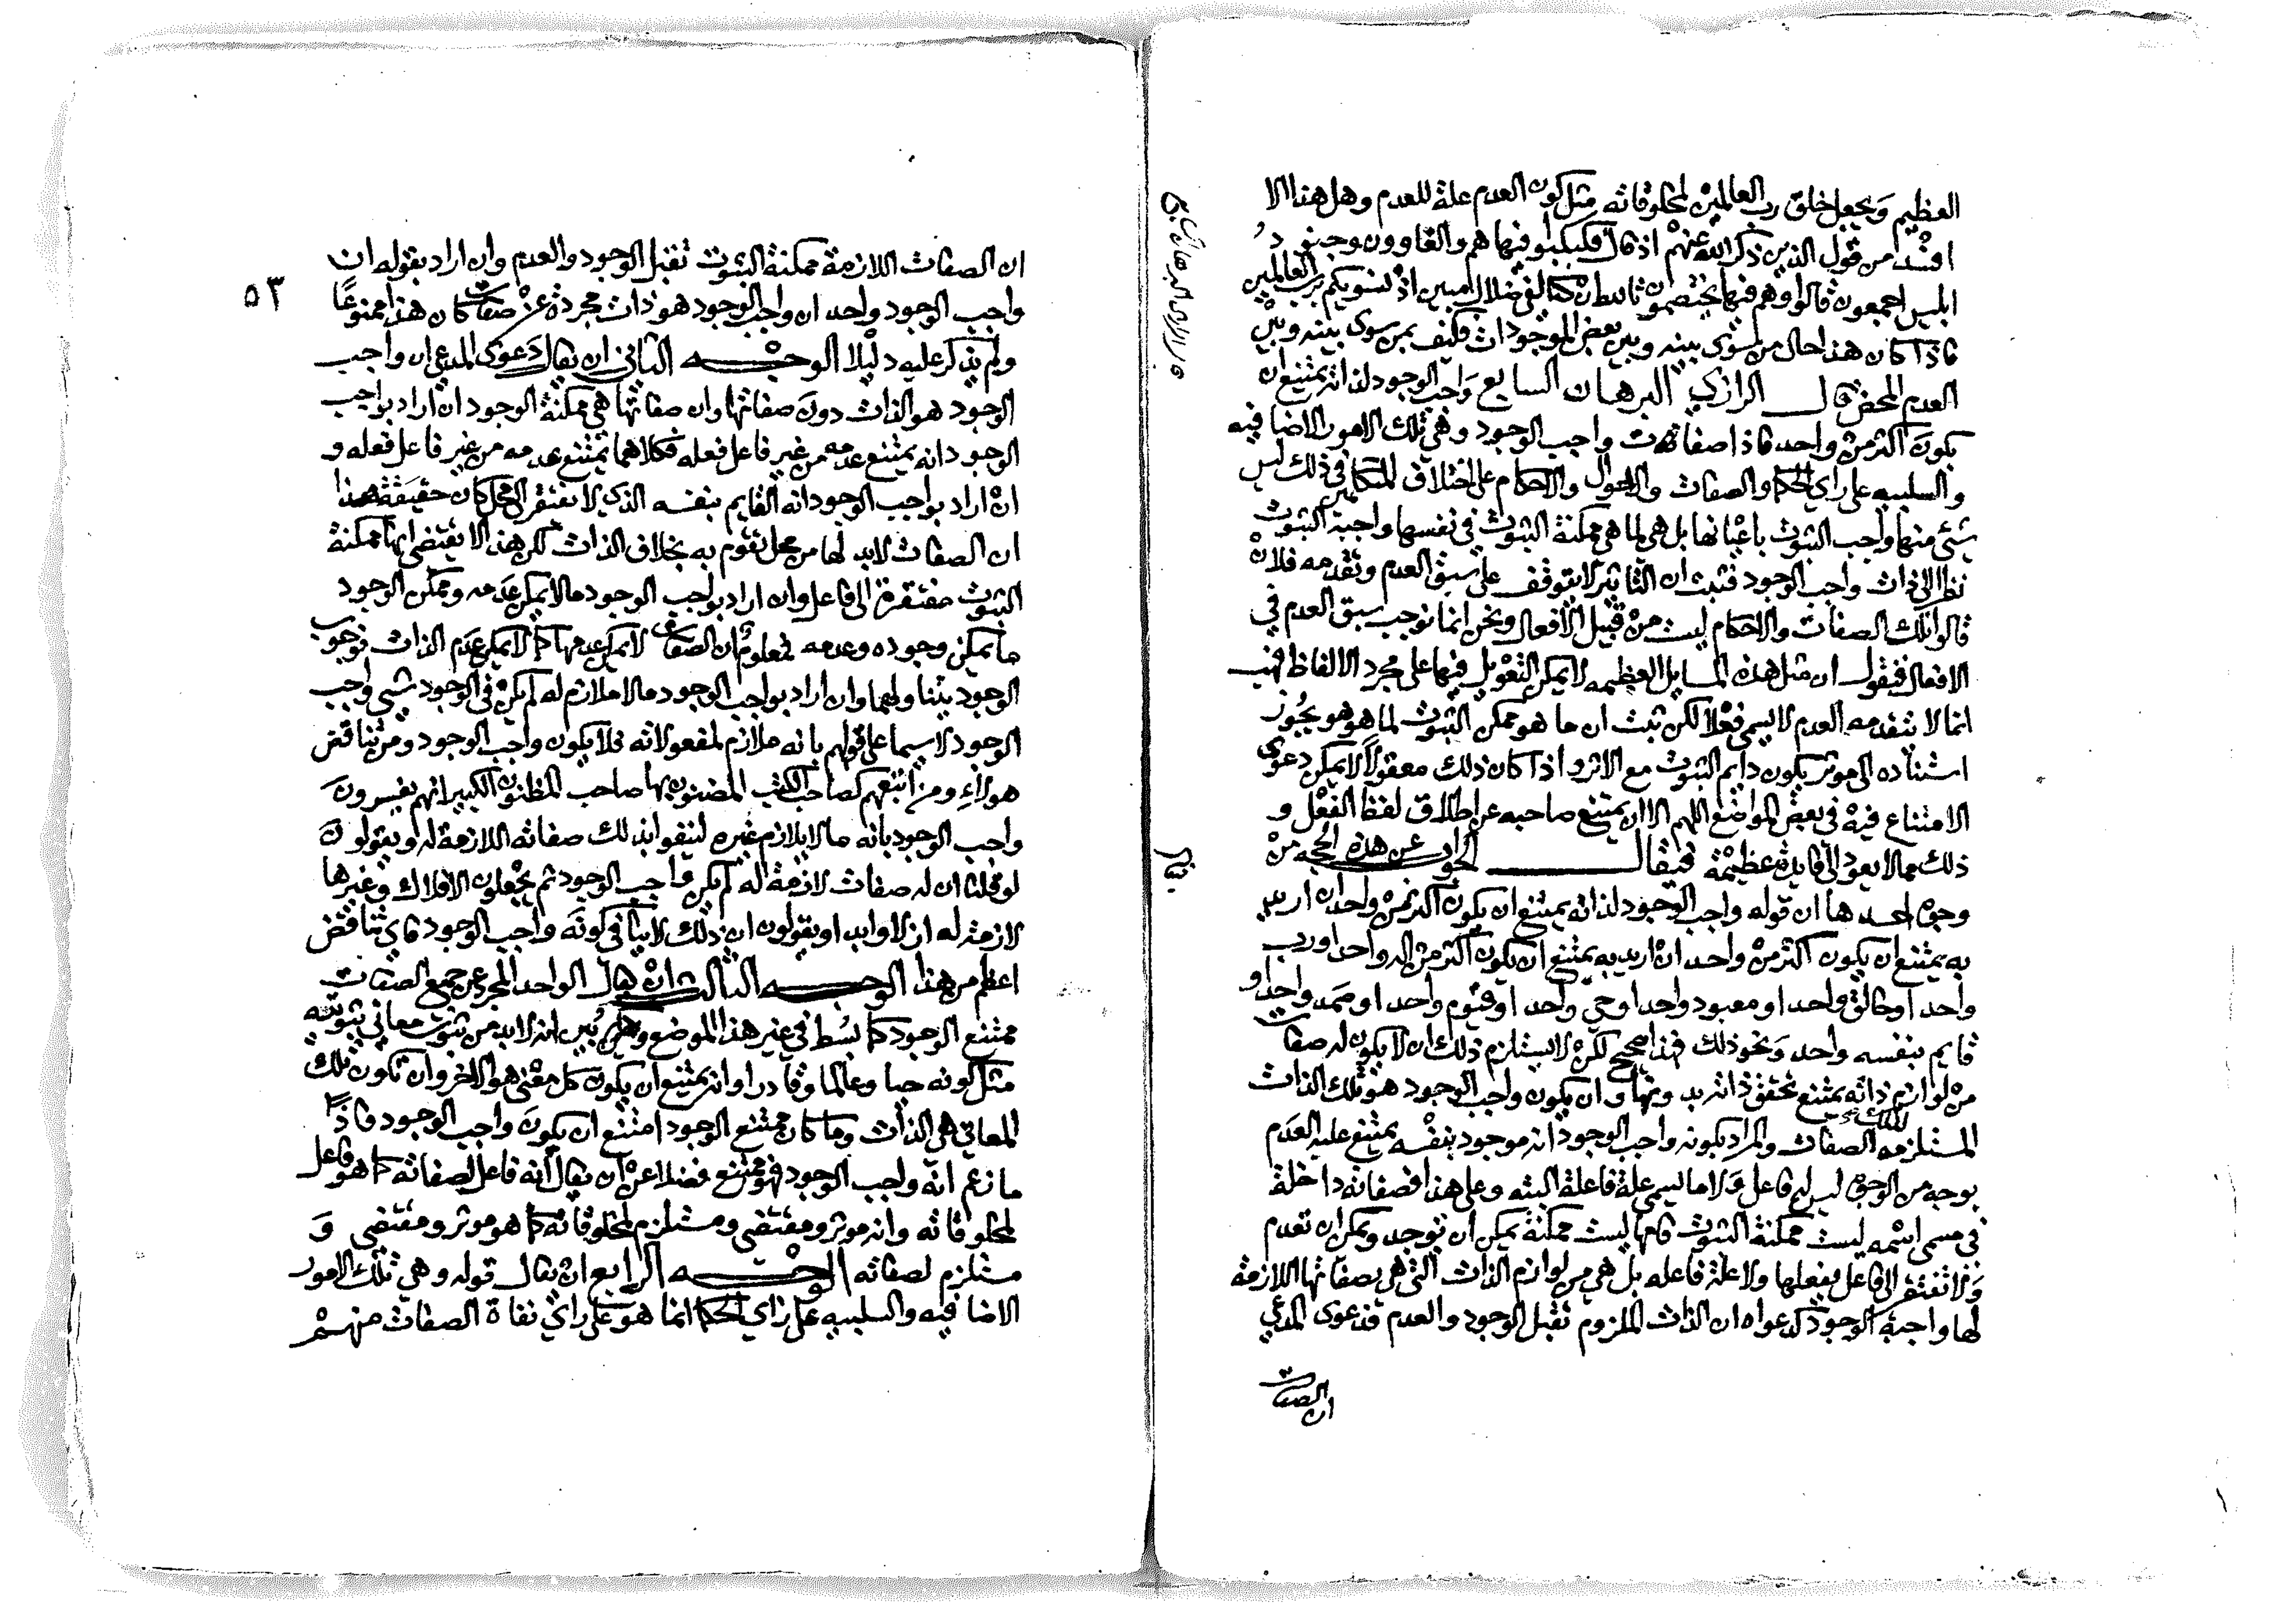 العظيم ويجعل خلق رب العالمين لمخلوقاته مثل كون العدم علة للعدم وهل هذا الا
افسد من قول الذين ذكر الله عنهم اذ قال فكبكبوا فيها هم والغاوون وجنود
ابليس اجمعون قالوا وهم فيها يختصمون تالله ان كنا لفي ضلال مبين اذ نسويكم برب العالمين
فاذا كان هذا حال من سوى بينه وبين بعض الموجودات فكيف بمن سوى بينه وبين
العدم المحض قال الرازي البرهان السابع واجب الوجود لذاته يمتنع ان
يكون اكثر من واحد فاذا صفات واجب الوجود وهي تلك الامور الاضافيه
والسلبيه على راي الحكما والصفات والاحوال والاحكام على اختلاف المتكلمين في ذلك ليس
شيء منها واجب الثبوت باعيانها بل هي لما هي ممكنة الثبوت في نفسها واجبة الثبوت
نظرا الى ذات واجب الوجود فثبت ان التاثير لا يتوقف على سبق العدم وتقدمه فلان
قالوا تلك الصفات والاحكام ليست من قبيل الافعال ونحن انما نوجب سبق العدم في
الافعال فنقول ان مثل هذه المسايل العظيمه لا يمكن التعويل فيها على مجرد الالفاظ فهب
انما لا يتقدمه العدم لا يسمى فعلا لكن ثبت ان ما هو ممكن الثبوت لما هو هو يجوز
استناده الى موثر يكون دايم الثبوت مع الاثر واذا كان ذلك معقولا لا يمكن دعوى
الامتناع فيه في بعض المواضع اللهم الا ان يمتنع صاحبه عن اطلاق لفظ الفعل و
ذلك مما لا يعود الى فايدة عظيمة فيقال الجواب عن هذه الحجه من
وجوه احدها ان قوله واجب الوجود لذاته يمتنع ان يكون اكثر من واحد ان اريد
به يمتنع ان يكون اكثر من واحد ان اريد به يمتنع ان يكون اكثر من اله واحد او رب
واحد او خالق واحد او معبود واحد او حي واحد او قيوم واحد او صمد واحد او
قايم بنفسه واحد ونحو ذلك فهذا صحيح لكن لا يستلزم ذلك ان لا يكون له صفات
من لوازم ذاته يمتنع تحقق ذاته بدونها وان يكون واجب الوجود هو تلك الذات
المستلزمه لتلك الصفات والمراد بكونه واجب الوجود انه موجود بنفسه يمتنع عليه العدم
بوجه من الوجوه ليس له فاعل ولا ما يسمى علة فاعلة البته وعلى هذا فصفاته داخلة
في مسمى اسمه ليست ممكنة الثبوت فانها ليست ممكنة يمكن ان توجد ويمكن ان تعدم
ولا تفتقر الى فاعل يفعلها ولا علة فاعله بل هي من لوازم الذات التي هي بصفاتها اللازمة
لها واجبة الوجود كدعواه ان الذات الملزوم تقبل الوجود والعدم فدعوى المدعي
ان الصفات
ان الصفات اللازمة ممكنة الثبوت تقبل الوجود والعدم وان اراد بقوله ان
٥٣
واجب الوجود واحد ان واجب الوجود هو ذات مجردة عن صفات كان هذا ممنوعا
ولم يذكر عليه دليلا الوجه الثاني ان يقال دعوى المدعي ان واجب
الوجود هو الذات دون صفاتها وان صفاتها هي ممكنة الوجود ان اراد بواجب
الوجود انه يمتنع عدمه من غير فاعل فعله فكلاهما يمتنع عدمه من غير فاعل فعله و
ان اراد بواجب الوجود انه القايم بنفسه الذي لا يفتقر الى محل كان حقيقة هذا
ان الصفات لا بد لها من محل تقوم به بخلاف الذات لكن هذا لا يقتضي انها ممكنة
الثبوت مفتقرة الى فاعل وان اراد بواجب الوجود ما لا يمكن عدمه وممكن الوجود
ما يمكن وجوده وعدمه فمعلوم ان الصفات لا يمكن عدمها كما لا يمكن عدم الذات فوجوب
الوجود يتناولهما وان اراد بواجب الوجود ما لا ملازم له لم يكن في الوجود شيء واجب
الوجود لا سيما على قولهم بانه ملازم لمفعولاته فلا يكون واجب الوجود ومن تناقض
هولاء ومن اتبعهم كصاحب الكتب المضنون بها صاحب المظنون الكبير انهم يفسرون
واجب الوجود بانه ما لا يلازم غيره لينفوا بذلك صفاته اللازمة له ويقولون
لو قلنا ان له صفات لازمة له لم يكن واجب الوجود ثم يجعلون الافلاك وغيرها
لازمة له ازلا وابدا ويقولون ان ذلك لا ينافي كونه واجب الوجود فاي تناقض
اعظم من هذا الوجه الثالث ان يقال الواحد المجرد عن جميع الصفات
ممتنع الوجود كما بسط في غير هذا الموضع وبين انه لا بد من ثبوت معاني ثبوتيه
مثل كونه حيا وعالما وقادرا وانه يمتنع ان يكون كل معنى هو الاخر وان تكون تلك
المعاني هي الذات وما كان ممتنع الوجود امتنع ان يكون واجب الوجود فاذا
ما زعم انه واجب الوجود فهو ممتنع فضلا عن ان يقال انه فاعل لصفاته كما هو فاعل
لمخلوقاته وانه موثر ومقتضي ومستلزم لمخلوقاته كما هو موثر ومقتضي و
مستلزم لصفاته الوجه الرابع ان يقال قوله وهي تلك الامور
الاضافيه والسلبيه على راي الحكما انما هو على راي نفاة الصفات منهم